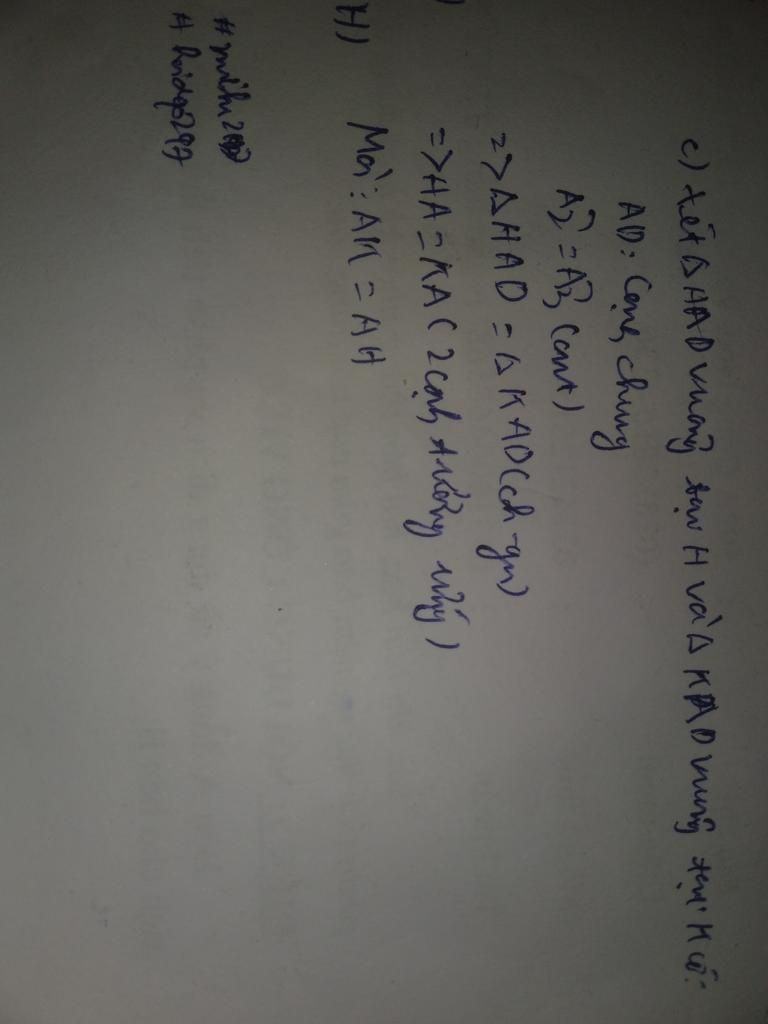 c) Xét ΔHAD vuông tại H và ΔKAD vuông tại K có:
AD: Cạnh chung
Â2 = Â3 (cmt)
=> ΔHAD = ΔKAD (ch-gn)
=> HA = KA (2 cạnh tương ứng)
H) Mà: AK = AH